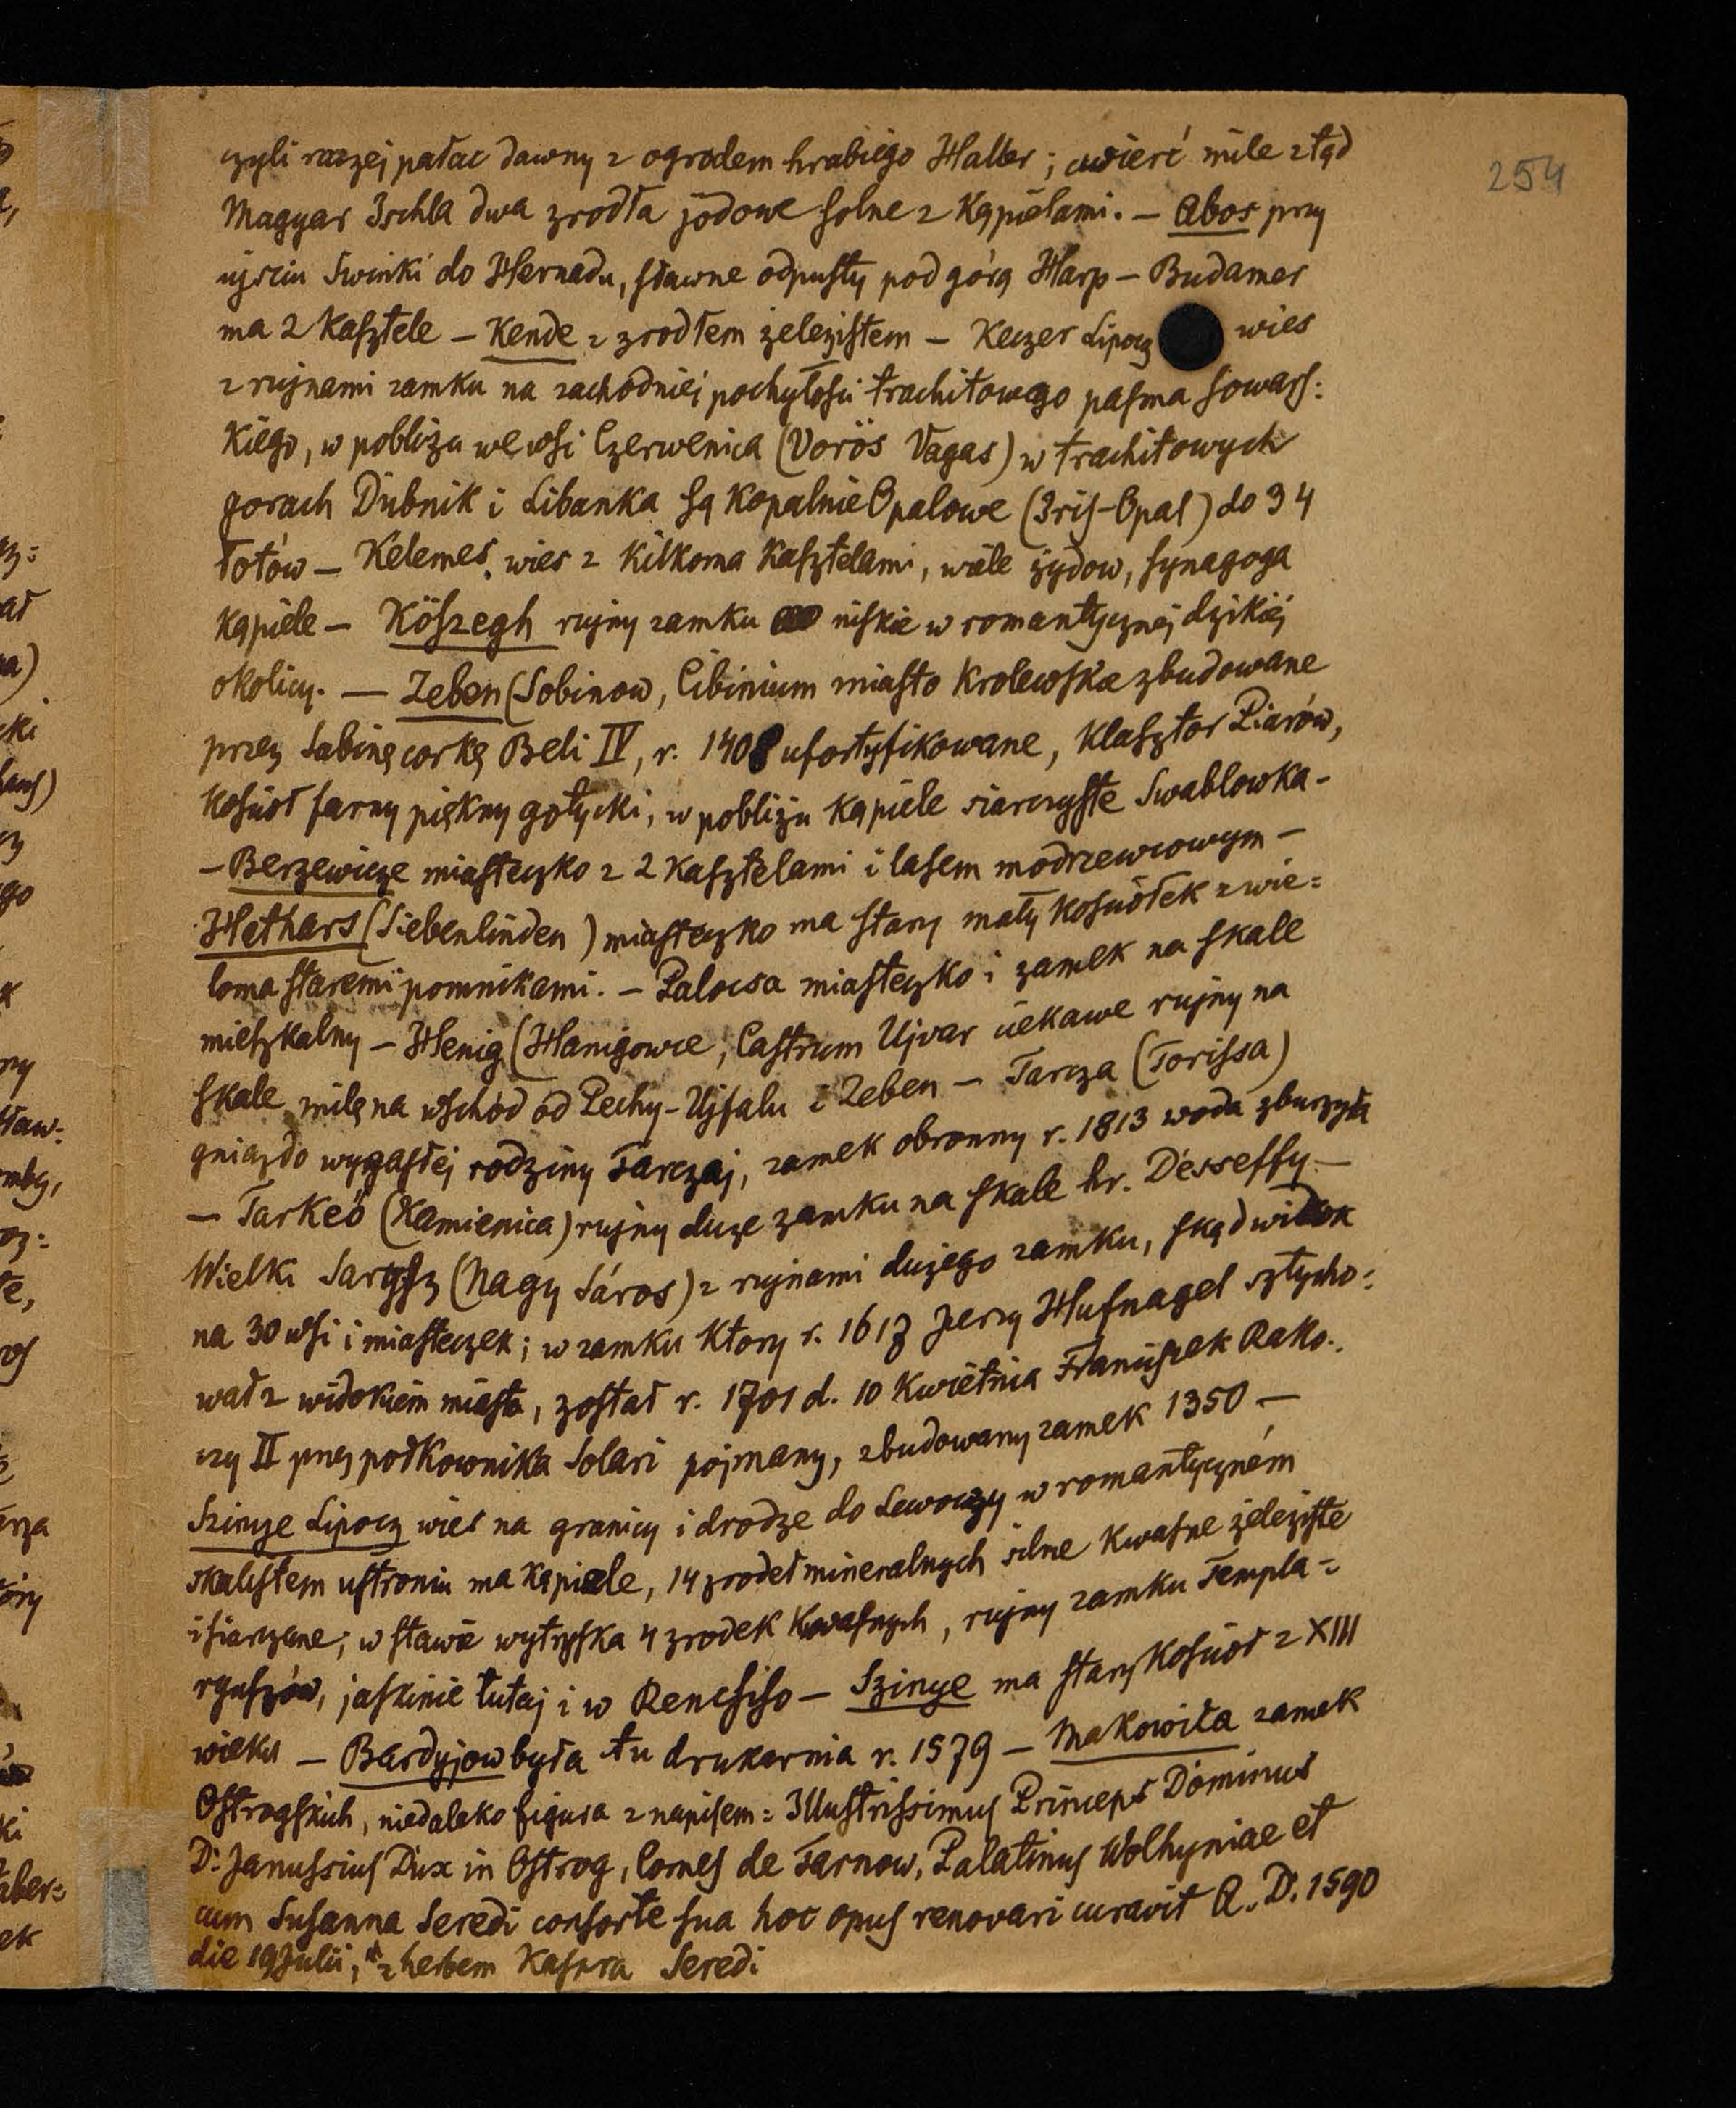 254
czyli raczej pałac dawny z ogrodem hrabiego Haller; cwierć mile ztąd
Magyar Ischla dwa zrodła jodowe solne z Kąpielami. — Abos przy
ujsciu Swinki do Hernadu, sławne odpusty pod górą Harp — Budamer
ma 2 Kasztele — Kende z zrodłem żelezistem — Keczer Lipocz wies
z rujnami zamku na zachodniej pochyłosci trachitowego pasma sowars:
Kiego, w pobliżu we wsi Czerwenica (Vorös Vagas) w trachitowych
gorach Dubnik i Libanka są Kopalnie Opalowe (Iris-Opal) do 34
łotów — Kelemes, wies z Kilkoma Kasztelami, wiele żydow, synagoga
Kąpiele — Köszegh rujny zamku niskie w romantycznej dzikiej
okolicy. — Zeben (Sobinow, Cibinium miasto Krolewskie zbudowane
przez Sabinę corkę Beli IV, r. 1408 ufortyfikowane, Klasztor Piarów,
Kosciół farny piękny gotycki, w pobliżu Kąpiele siarczyste Swablowka -
— Berzewicze miasteczko z 2 Kasztelami i lasem modrzewiowym —
Hethars (Siebenlinden) miasteczko ma stary mały Kosciółek z wie=
loma staremi pomnikami. — Palocsa miasteczko i zamek na skale
mieszkalny — Henig (Hanigowce, Castrum Ujvar ciekawe rujny na
skale milę na wschód od Pechy-Ujfalu i Zeben — Tarcza (Torissa)
gniazdo wygasłej rodziny Tarczaj, zamek obronny r. 1813 woda zburzyła
— Tarkeö (Kamienica) rujny duże zamku na skale hr. Desseffy —
Wielki Sarysz (Nagy Sáros) z rujnami dużego zamku, skąd widok
na 30 wsi i miasteczek; w zamku Ktory r. 1617 Jerzy Hufnagel sztycho:
wał z widokiem miasta, został r. 1701 d. 10 Kwietnia Franciszek Rako:
czy II przez połkownika Solari pojmany, zbudowany zamek 1350 —
Szinye Lipocz wies na granicy i drodze do Lewoczy w romantyczném
skalistem ustroniu ma Kąpiele, 14 zrodeł mineralnych silne Kwasne żeleziste
i siarczane; w stawie wytryska 4 zrodek Kwasnych, rujny zamku Templa=
ryuszów, jaskinie tutaj i w Rencsiso — Szinye ma stary Kosciół z XIII
wieku — Bardyjow była tu drukarnia r. 1579 — Makowica zamek
Ostrogskich, niedaleko figura z napisem: Illustrissimus Princeps Dominus
D: Janussius Dux in Ostrog, Comes de Tarnow, Palatinus Wolhyniae et
cum Susanna Seredi consorte sua hoc opus renovari curavit A. D. 1590
die 19 Julii; z herbem Kaspra Seredi